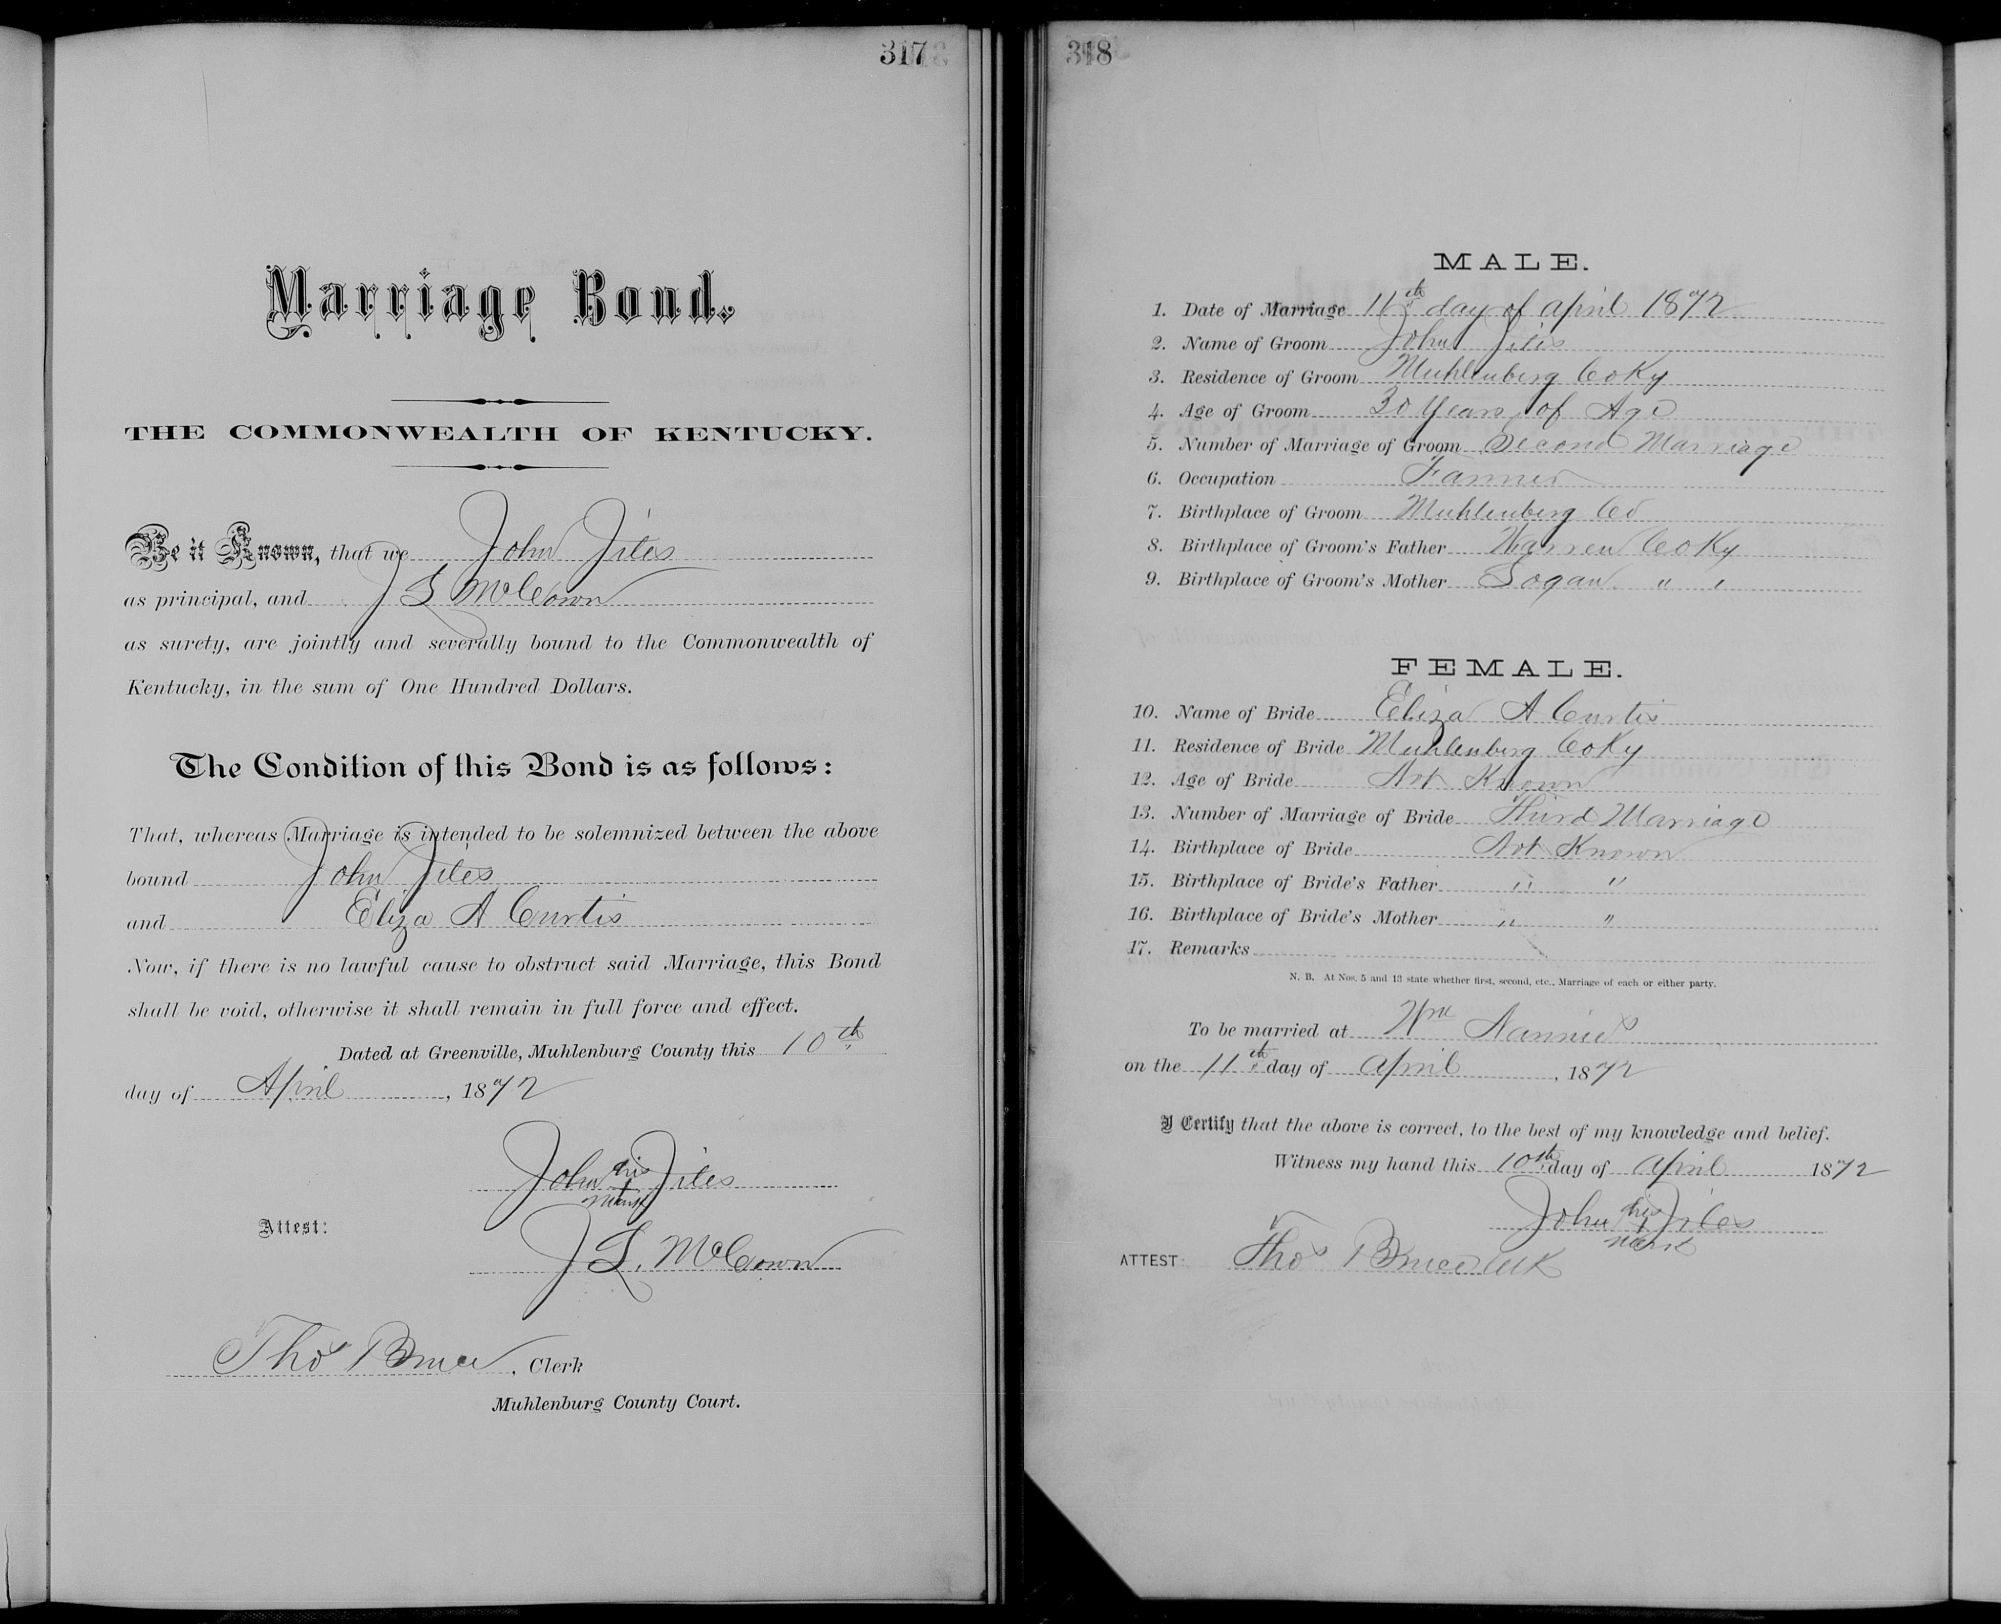 317
Marriage Bond.
THE COMMONWEALTH OF KENTUCKY.
Be it Known, that we John Jiles
as principal, and J L McCown
as surety, are jointly and severally bound to the Commonwealth of
Kentucky, in the sum of One Hundred Dollars.
The Condition of this Bond is as follows:
That, whereas Marriage is intended to be solemnized between the above
bound John Jiles
and Eliza A Curtis
Now, if there is no lawful cause to obstruct said Marriage, this Bond
shall be void, otherwise it shall remain in full force and effect.
Dated at Greenville, Muhlenburg County this 10th
day of April, 1872
John his Jiles
mark
Attest:
J L. McCown
Thos Bruce, Clerk
Muhlenburg County Court.
318
MALE.
1. Date of Marriage 11th day of April 1872
2. Name of Groom John Jiles
3. Residence of Groom Muhlenberg Co Ky
4. Age of Groom 30 Years of Age
5. Number of Marriage of Groom Second Marriage
6. Occupation Farmer
7. Birthplace of Groom Muhlenberg Co
8. Birthplace of Groom's Father Warren Co Ky
9. Birthplace of Groom's Mother Logan " "
FEMALE.
10. Name of Bride Eliza A Curtis
11. Residence of Bride Muhlenberg Co Ky
12. Age of Bride Not Known
13. Number of Marriage of Bride Third Marriage
14. Birthplace of Bride Not Known
15. Birthplace of Bride's Father " "
16. Birthplace of Bride's Mother " "
17. Remarks
N. B. At Nos. 5 and 13 state whether first, second, etc., Marriage of each or either party.
To be married at Wm
on the 11th day of April, 1872
I Certify that the above is correct, to the best of my knowledge and belief.
Witness my hand this 10th day of April 1872
John his Jiles
mark
ATTEST: Thos Bruce Clk